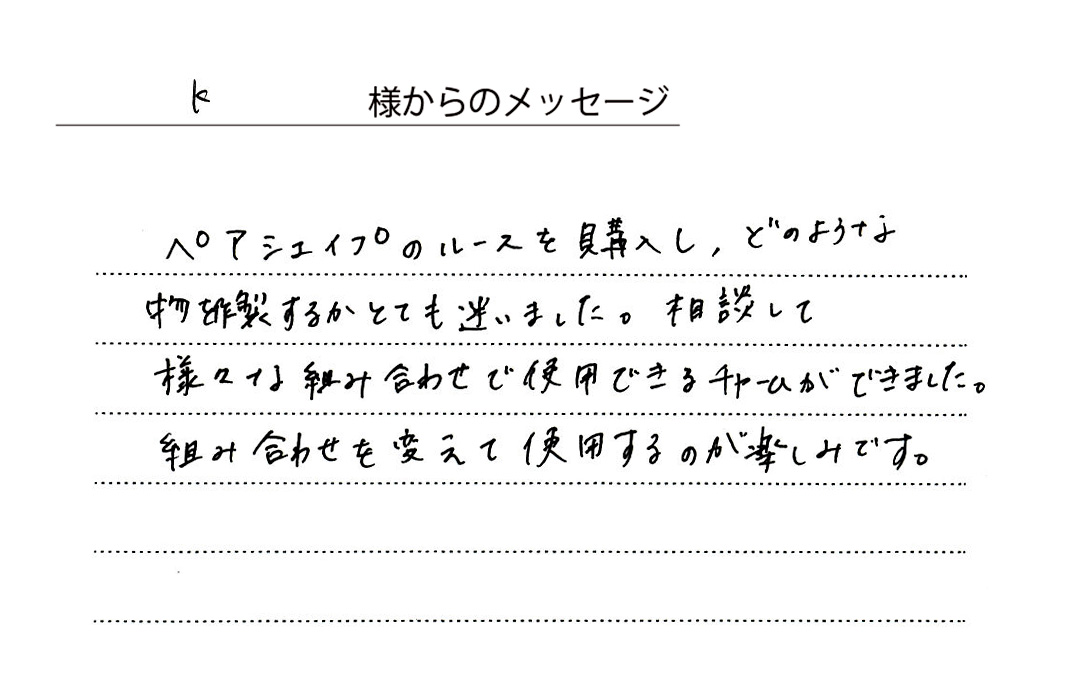 K 様からのメッセージ
ペアシェイプのルースを購入し、どのような
物を作製するかとても迷いました。相談して
様々な組み合わせで使用できるチャームができました。
組み合わせを変えて使用するのが楽しみです。